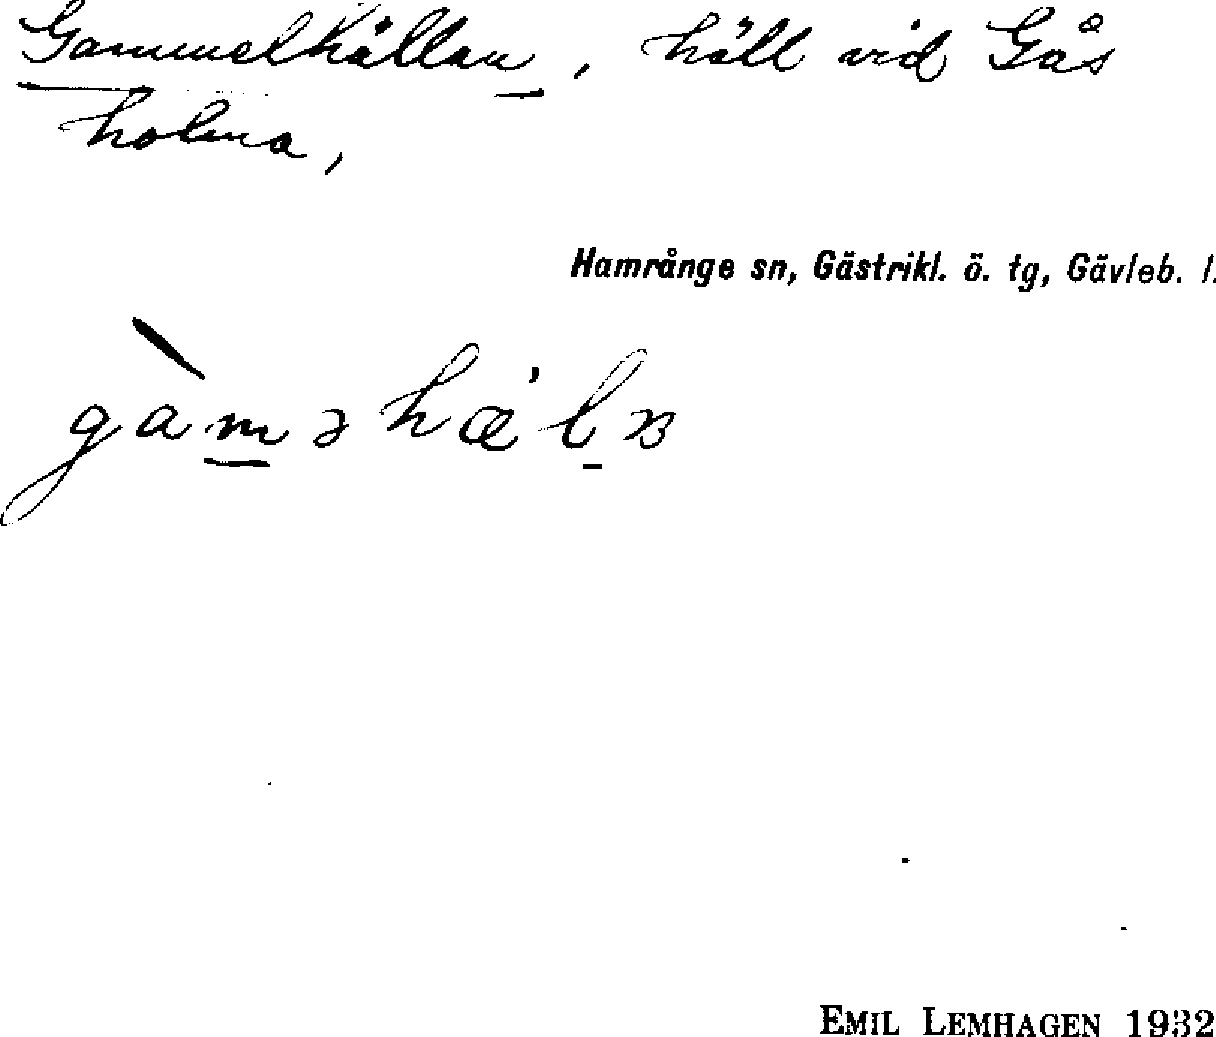 Gammelhällan, häll vid Gås
holma,
Hamrånge sn, Gästrikl. ö. tg, Gävleb. l.
gàməhæ̀lɴ
EMIL LEMHAGEN 1932